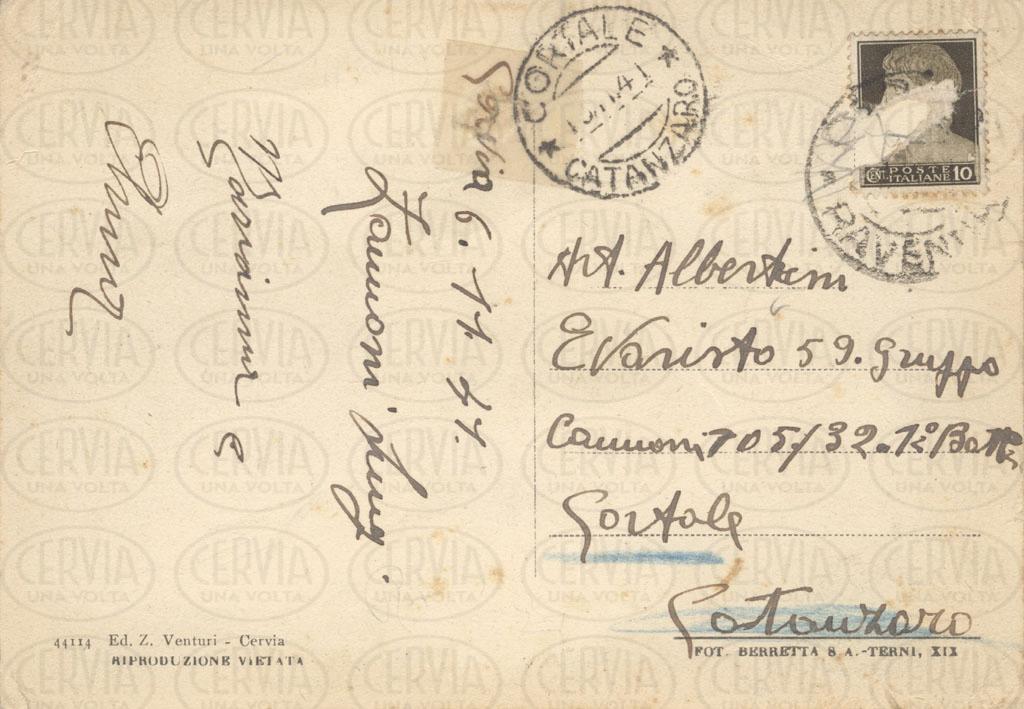 Cervia 6.11.41.
Zannoni Luig.
CORTALE
CATANZARO
RAVENNA
POSTE
ITALIANE
CENT. 10
Art. Albertini
Evaristo 59. Gruppo
Cannoni 105/32. 1ª Batt
Cortale
Catanzaro
44114 Ed. Z. Venturi - Cervia
RIPRODUZIONE VIETATA
FOT. BERRETTA S A.-TERNI, XIX
CERVIA
UNA VOLTA